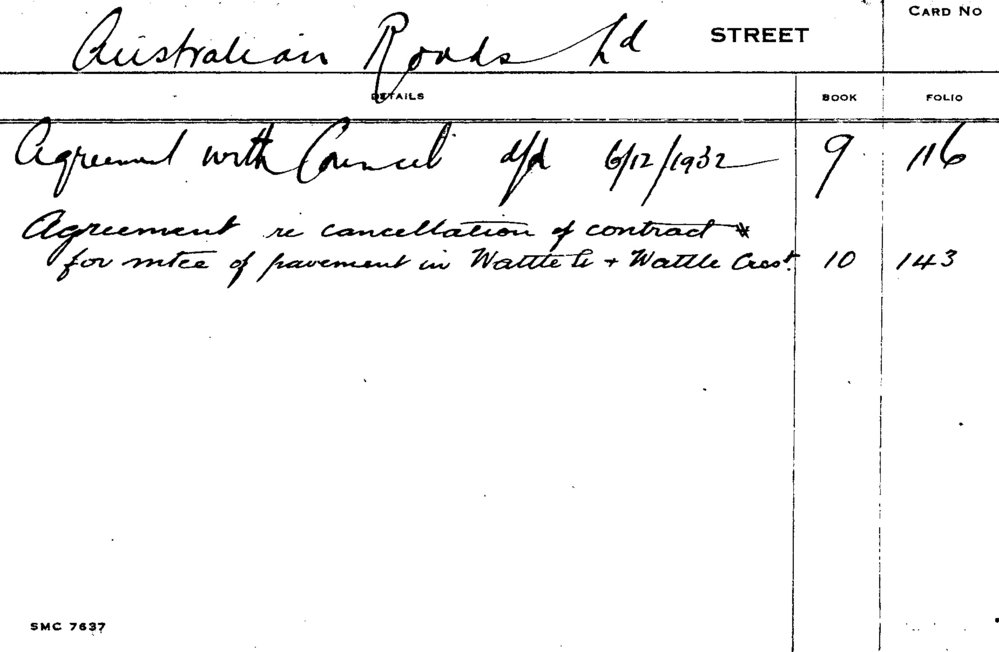 Australian Roads Ld STREET CARD NO
DETAILS BOOK FOLIO
Agreement with Council d/d 6/12/1932 9 116
Agreement re cancellation of contract
for mtce of pavement in Wattle + Wattle Cres.t 10 143
SMC 7637